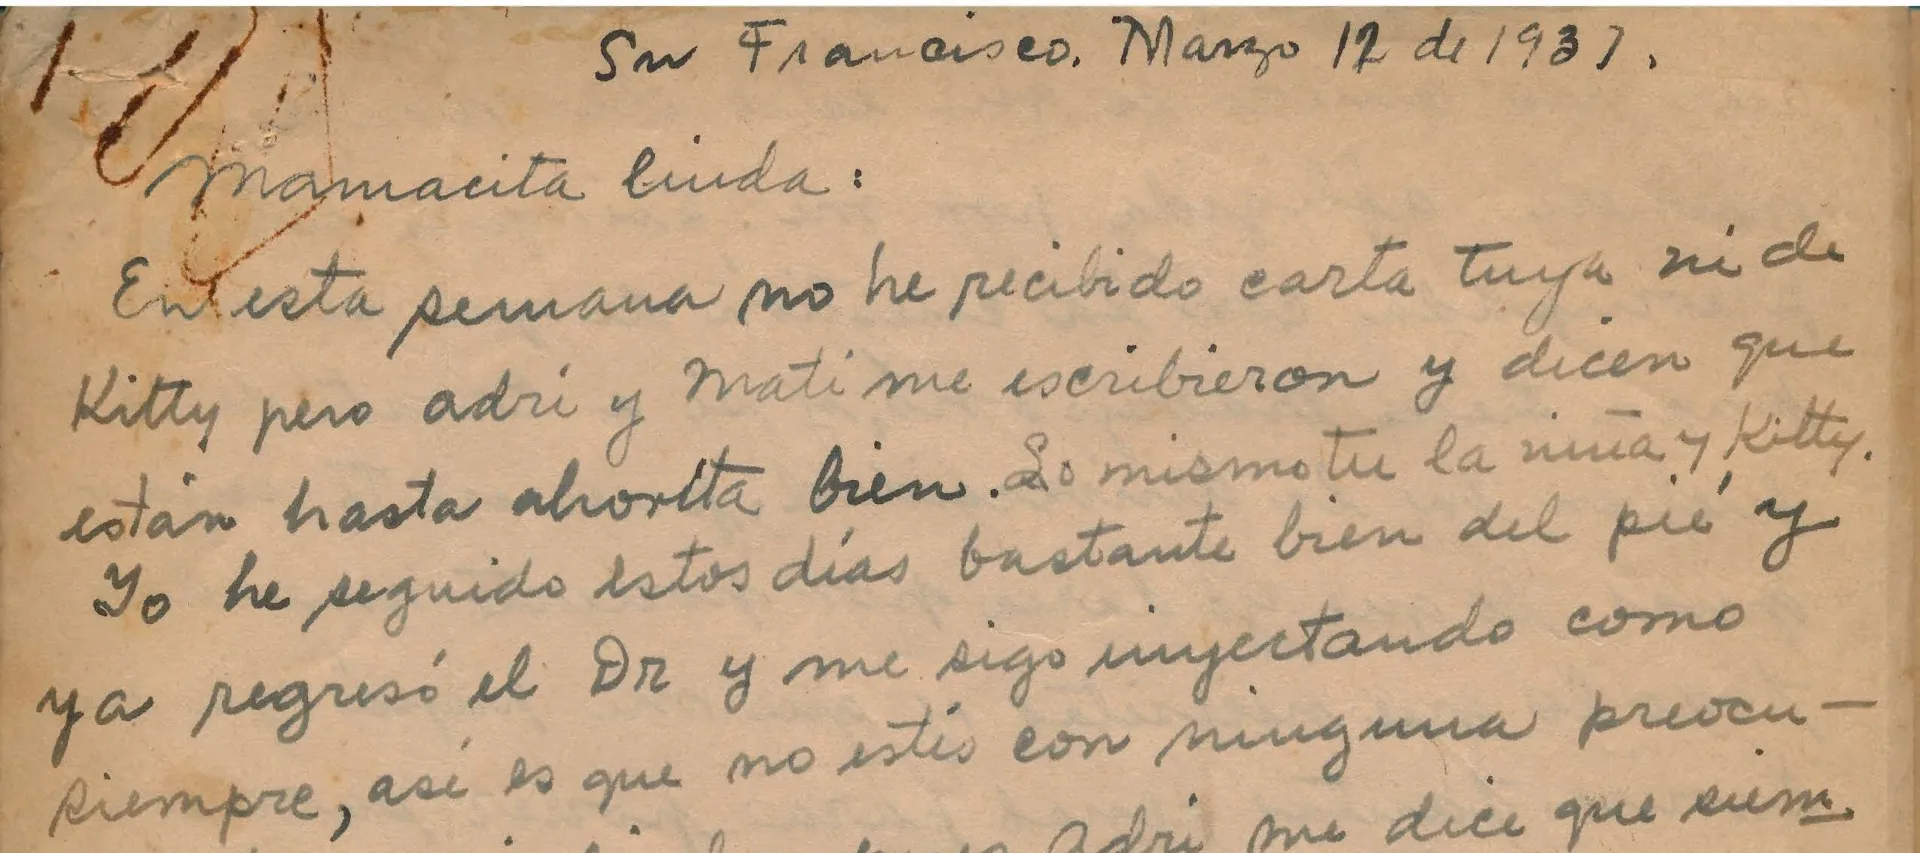 Sn Francisco. Marzo 12 de 1937.
Mamacita linda:
En esta semana no he recibido carta tuya ni de
Kitty pero adri y Mati me escribieron y dicen que
están hasta ahorita bien. Lo mismo tu la niña y Kitty.
Yo he seguido estos días bastante bien del pié y
ya regresó el Dr y me sigo inyectando como
siempre, asi es que no estés con ninguna preocu-
Adri me dice que siem